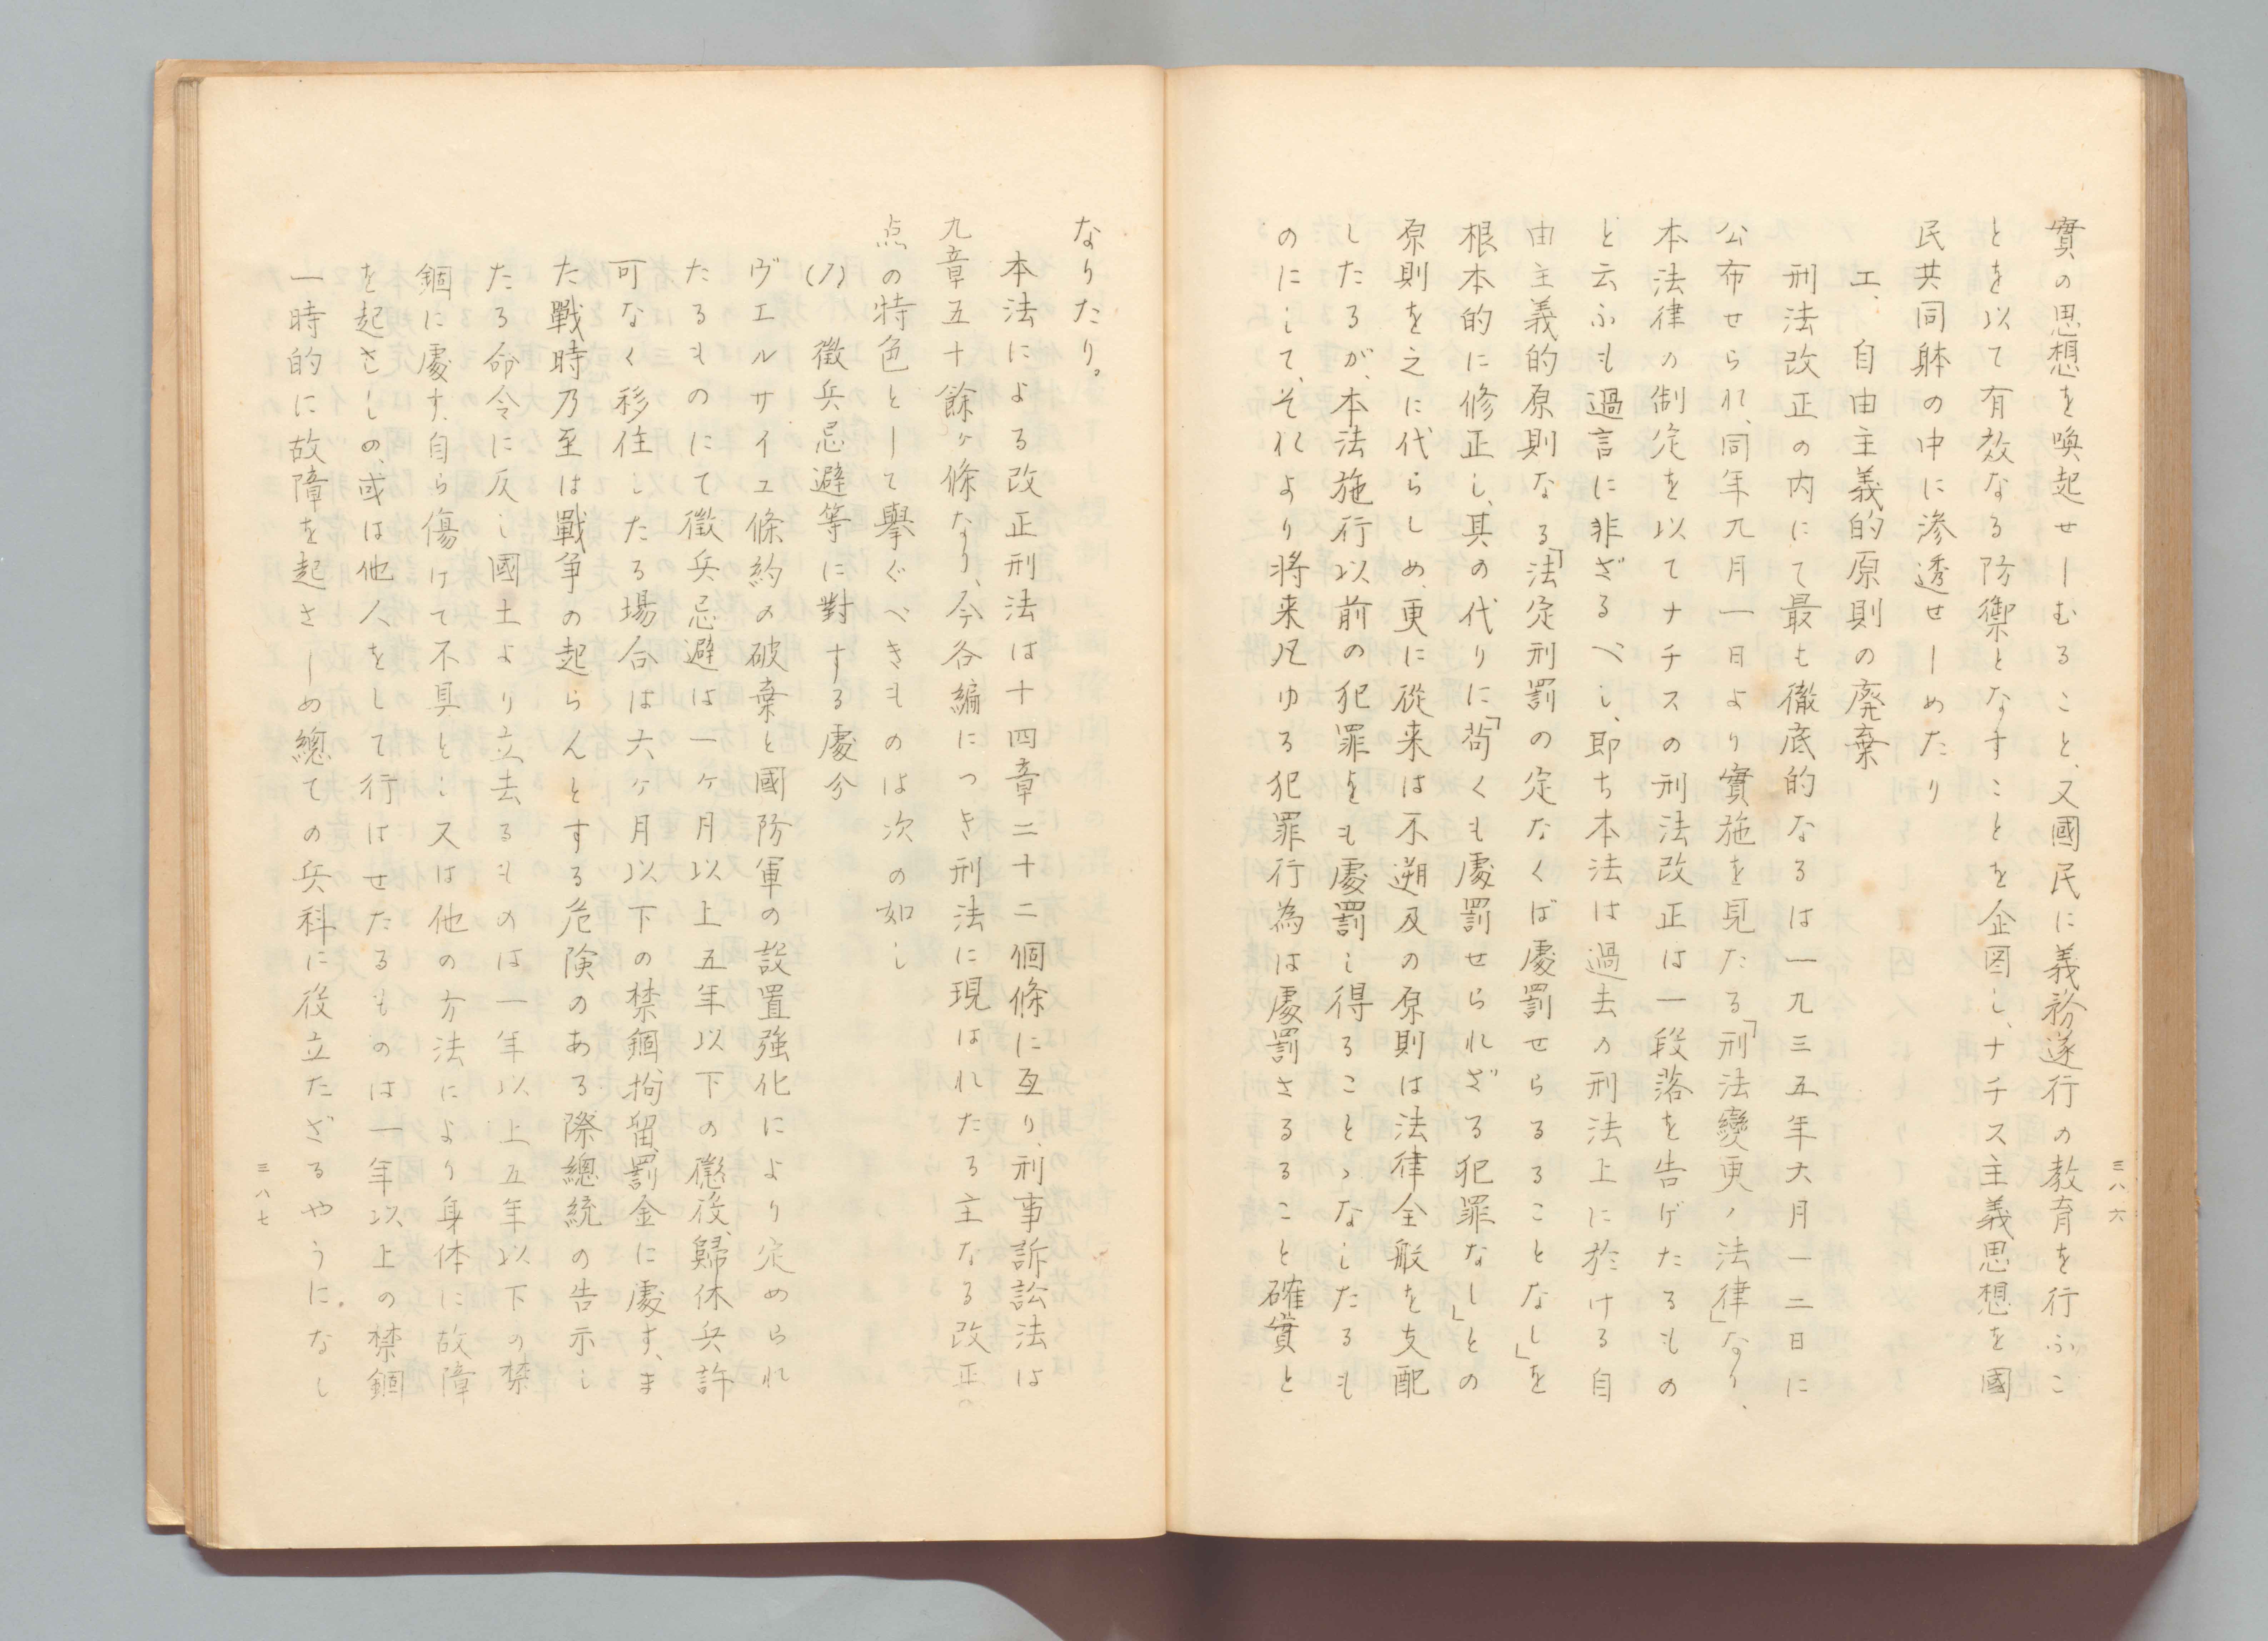 實の思想を喚起せしむること、又國民に義務遂行の教育を行ふこ
とを以て有効なる防禦となすことを企図し、ナチス主義思想を國
民共同躰の中に滲透せしめたり
エ、自由主義的原則の廃棄
刑法改正の内にて最も徹底的なるは一九三五年六月一二日に
公布せられ、同年九月一日より實施を見たる「刑法變更ノ法律」なり、
本法律の制定を以てナチスの刑法改正は一段落を告げたるもの
と云ふも過言に非ざるべし、即ち本法は過去の刑法上に於ける自
由主義的原則なる「法定刑罰の定なくば處罰せらるることなし」を
根本的に修正し、其の代りに「苟くも處罰せられざる犯罪なし」との
原則を之に代らしめ、更に從来は不遡及の原則は法律全般を支配
したるが、本法施行以前の犯罪をも處罰し得ることゝなしたるも
のにして、それより将来凡ゆる犯罪行為は處罰さるること確實と
三八六
なりたり。
本法による改正刑法は十四章二十二個條に亙り、刑事訴訟法は
九章五十餘ヶ條なり、今各編につき刑法に現はれたる主なる改正の
点の特色として擧ぐべきものは次の如し
(ア) 徴兵忌避等に對する處分
ヴエルサイユ條約の破棄と國防軍の設置強化により定められ
たるものにて徴兵忌避は一ヶ月以上五年以下の懲役、歸休兵許
可なく移住したる場合は六ヶ月以下の禁錮、拘留、罰金に處す、ま
た戰時乃至は戰争の起らんとする危険のある際總統の告示し
たる命令に反し國土より立去るものは一年以上五年以下の禁
錮に處す、自ら傷けて不具とし又は他の方法により身体に故障
を起さしの、或は他人をして行はせたるものは一年以上の禁錮
一時的に故障を起さしめ總ての兵科に役立たざるやうになし
三八七